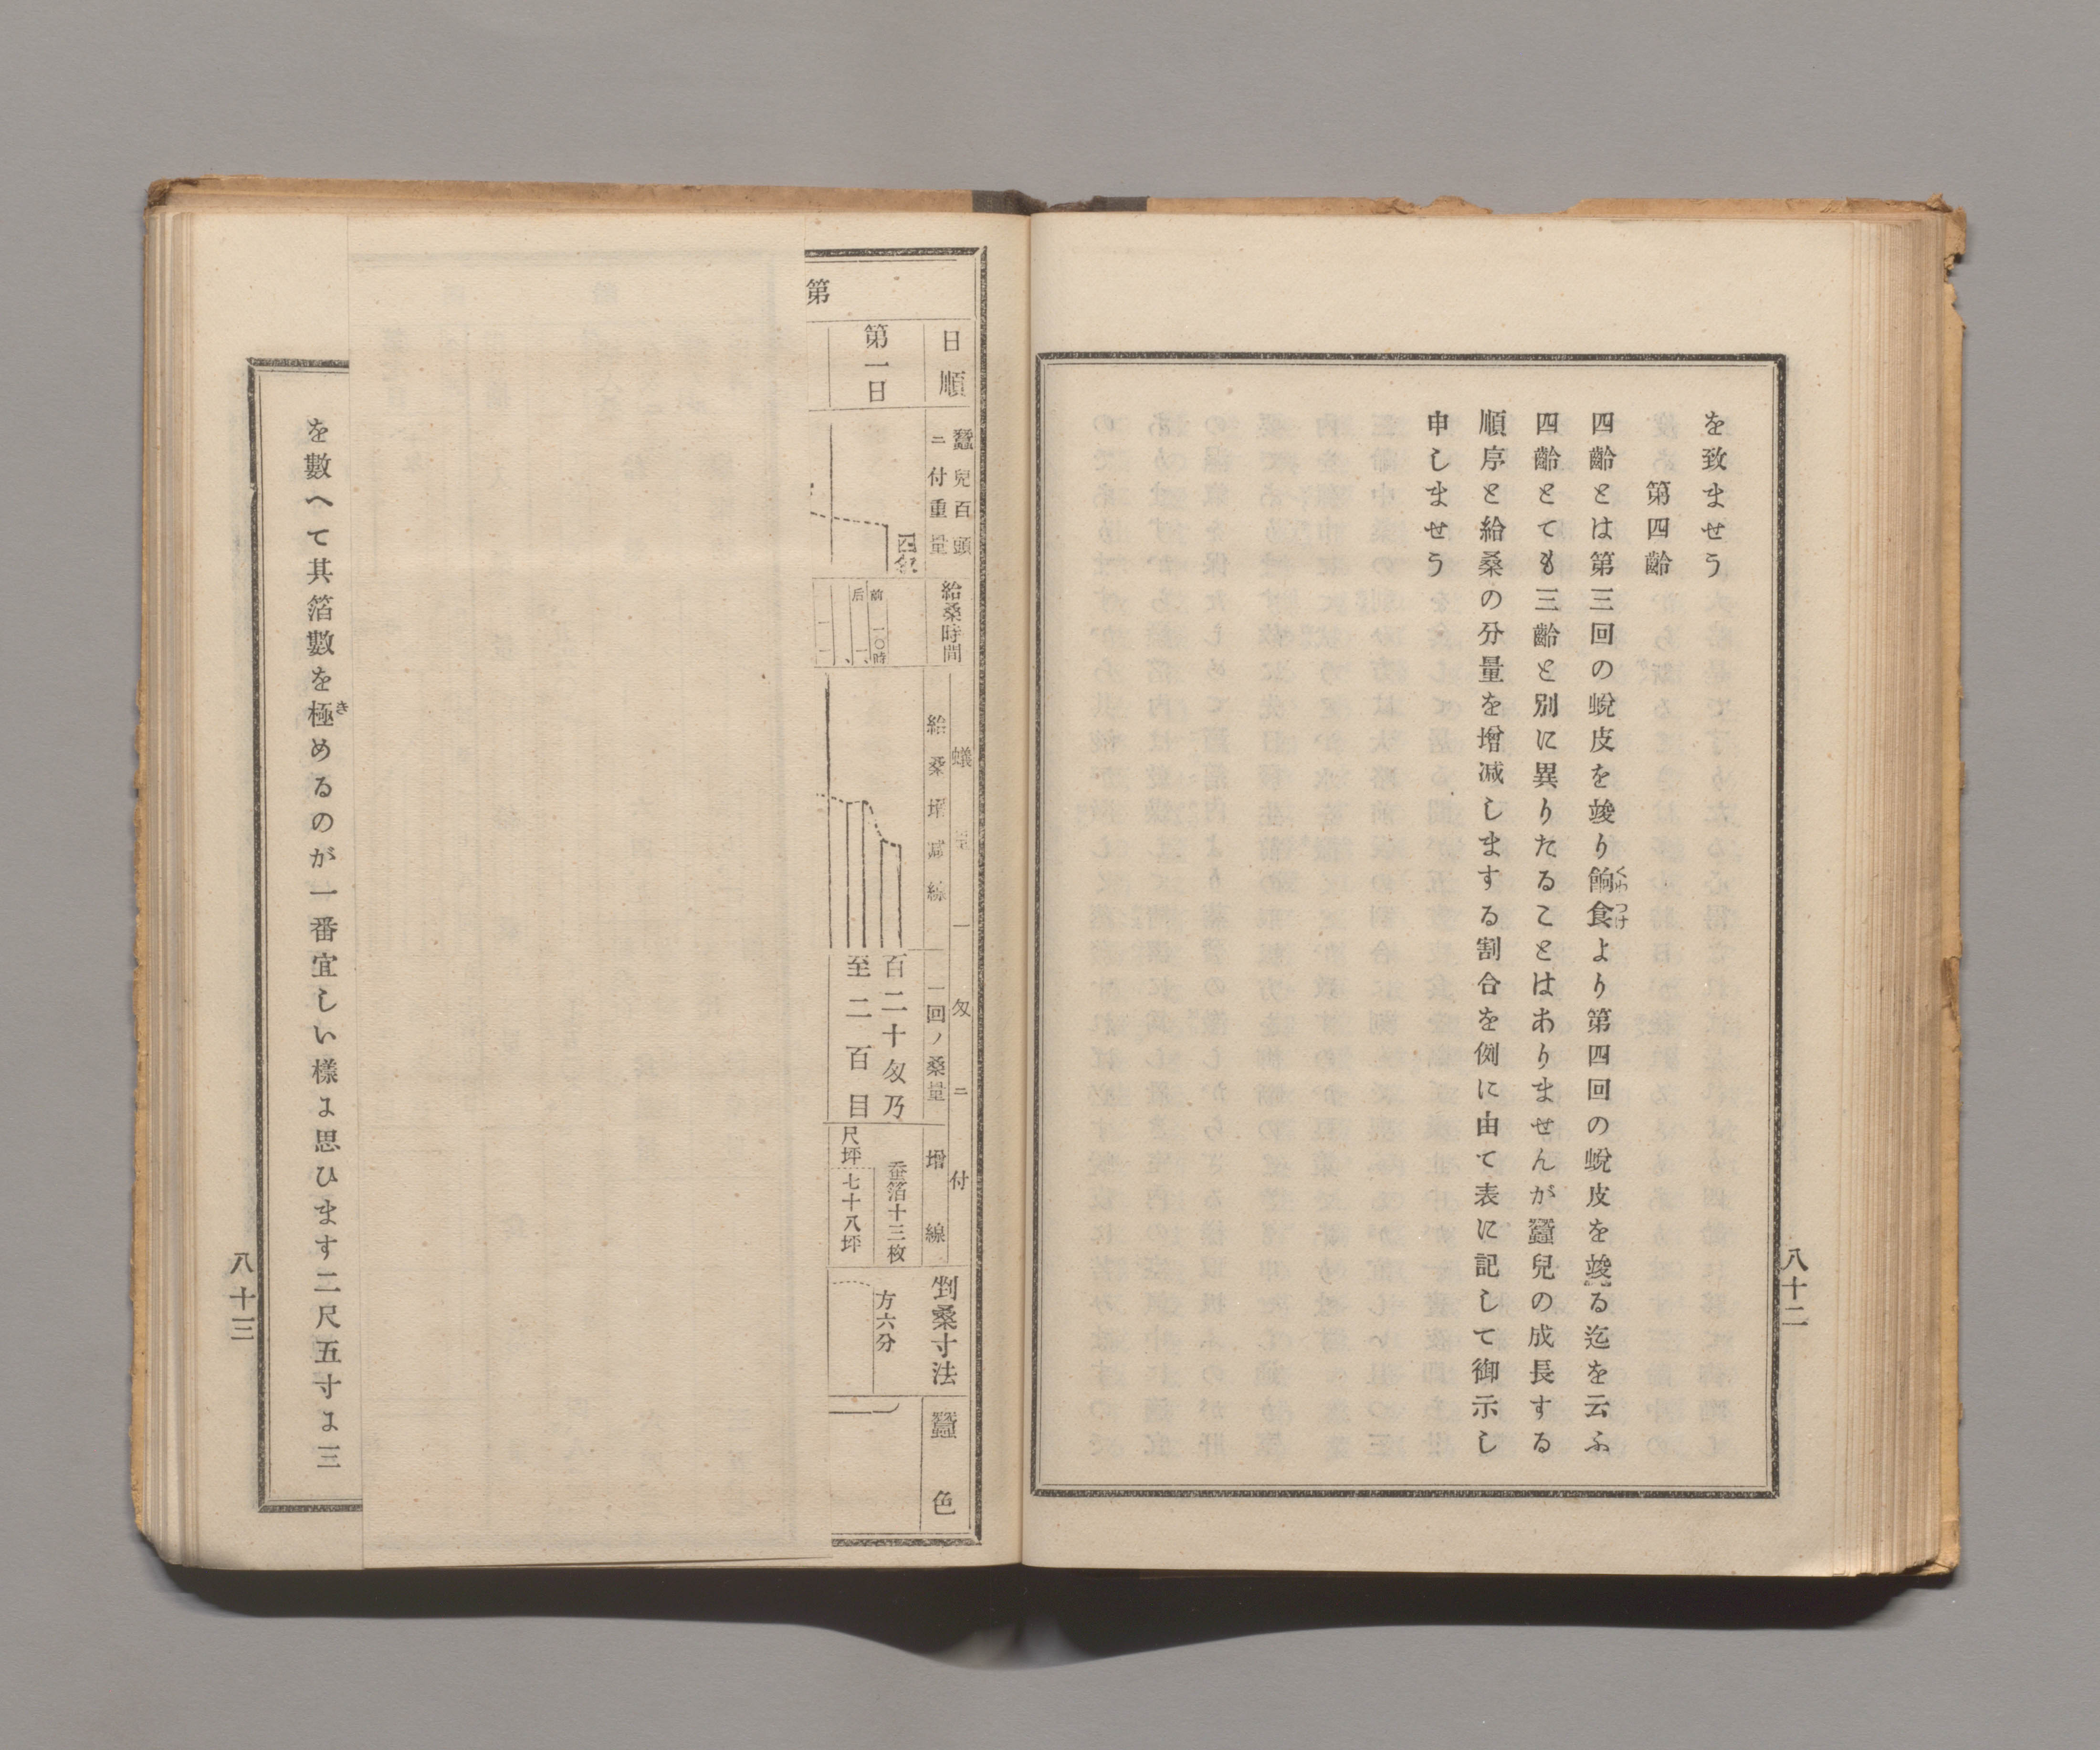 を致ませう
第四齡
四齡とは第三回の蛻皮を竣り餉食くわつけより第四回の蛻皮を竣る迄を云ふ
四齡とても三齡と別に異りたることはありませんが蠶兒の成長する
順序と給桑の分量を增减しまする割合を例に由て表に記して御示し
申しませう
八十二
第
日順
蠶兒百頭
ニ付重量
給桑時間
蟻量一匁ニ付
給桑增减線
一回ノ桑量
增線
剉桑寸法
蠶色
第一日
前一〇時
后一、
百二十匁乃
至二百目
蚕箔十三枚
尺坪七十八坪
方六分
を數へて其箔數を極きめるのが一番宜しい樣に思ひます二尺五寸に三
八十三